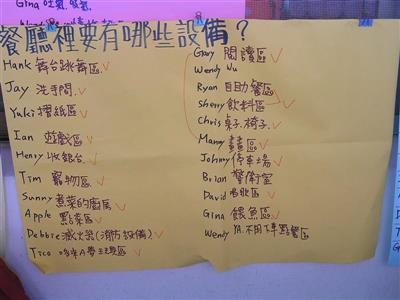 Gina
餐廳裡要有哪些設備？
Hank 舞台跳舞區
Jay 洗手間
Yuki 摺紙區
Ian 遊戲區
Henry 收銀台
Tim 寵物區
Sunny 煮菜的廚房
Apple 點菜區
Debbie 滅火器(消防設備)
Tico 哆啦A夢主題區
Gary 閱讀區
Wendy Wu
Ryan 自助餐區
Sherry 飲料區
Chris 桌子.椅子.
Manny 畫畫區
Johnny 停車場
Brian 警衛室
David 唱歌區
Gina 餵魚區
Wendy YA. 不用下車點餐區